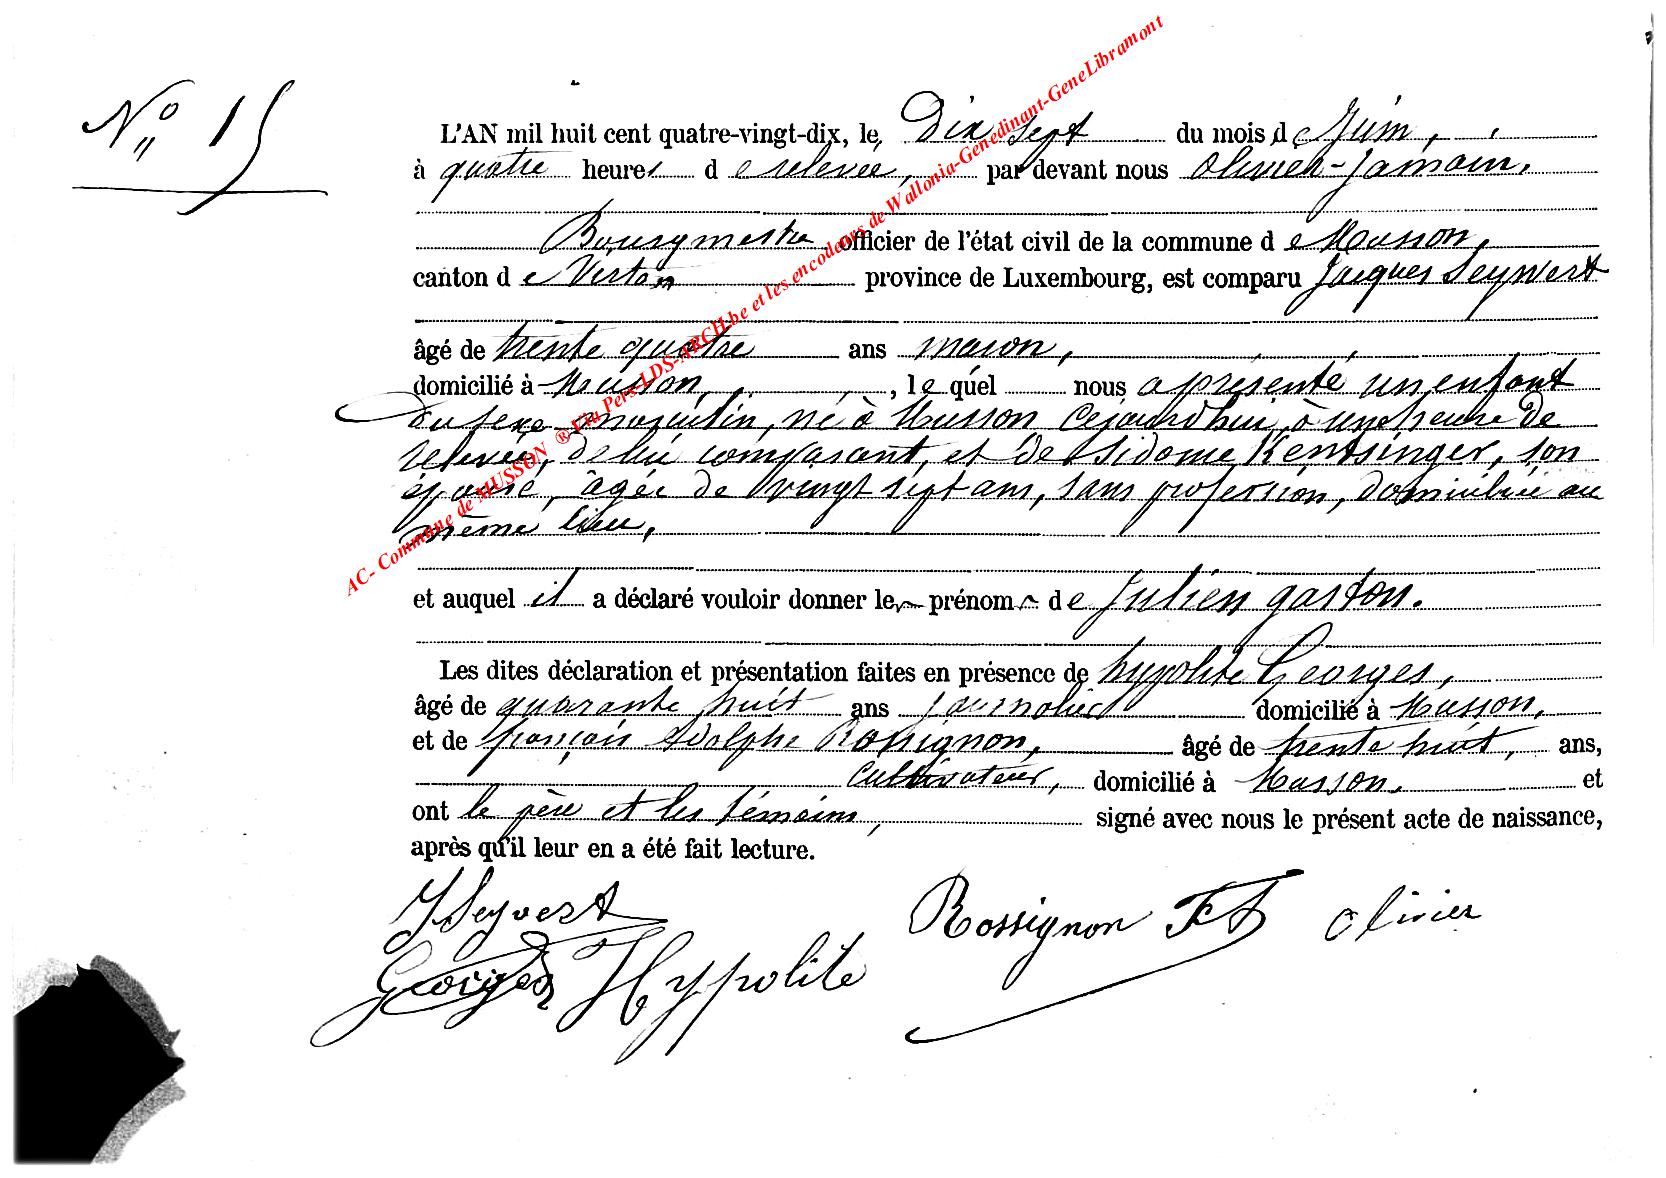 N° 15
L'AN mil huit cent quatre-vingt-dix, le, Dix sept du mois de Juin,
à quatre heures de relevée, par devant nous Olivier-Jamain,
Bourgmestre, officier de l'état civil de la commune de Musson,
canton de Virton province de Luxembourg, est comparu Jacques Seyvert
âgé de trente quatre ans maçon,
domicilié à Musson, , lequel nous a présenté un enfant
du sexe masculin, né à Musson cejourd'hui, à une heure de
relevée, de lui comparant, et de Sidonie Kentsinger, son
épouse, âgée de vingt sept ans, sans profession, domiciliée au
même lieu,
et auquel il a déclaré vouloir donner les prénoms de Julien gaston.
Les dites déclaration et présentation faites en présence de hypolite Georges,
âgé de quarante huit ans journalier domicilié à Musson,
et de françois Adolphe Rossignon, âgé de trente huit, ans,
cultivateur, domicilié à Musson, et
ont le père et les témoins, signé avec nous le présent acte de naissance,
après qu'il leur en a été fait lecture.
J Seyvert
Rossignon FA
Olivier
Georges Hyppolite
AC- Commune de MUSSON ® Via Pers-LDS-ARCH.be et les encodeurs de Wallonia-Genedinant-GeneLibramont